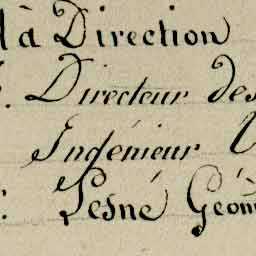 à Direction
Directeur des
Ingénieur
Lesné Géom